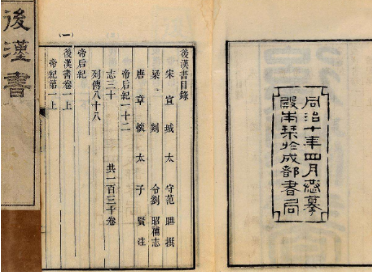 同治十年四月恭摹
殿本栞於成都書局
後漢書目錄
宋宣城太守范曄撰
梁剡令劉昭補志
唐章懷太子賢注
帝后紀一十二
志三十
列傳八十八
共一百三十卷
帝后紀
後漢書卷一上
帝紀第一上
(一)
後漢書